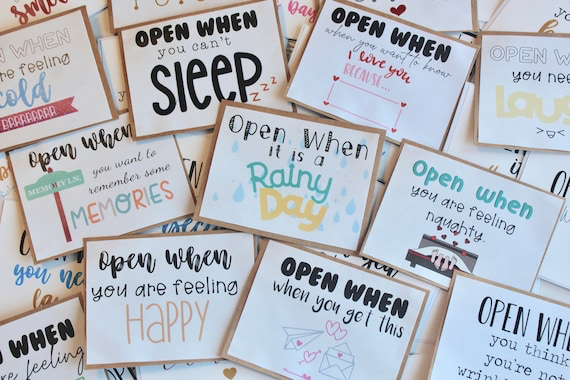 OPEN WHEN
you are feeling
cold
BRRRRRRRR
OPEN WHEN
you can't
SLEEP
zzz
OPEN WHEN
when you want to know
I love you
BECAUSE...
OPEN WHEN
you need
open when
MEMORY LN.
you want to
remember some
MEMORIES
Open When
it is a
Rainy
DAY
open when
you are feeling
naughty.
open when
you are feeling
HAPPY
OPEN WHEN
when you get this
OPEN
you think
you're not
OPEN WHEN